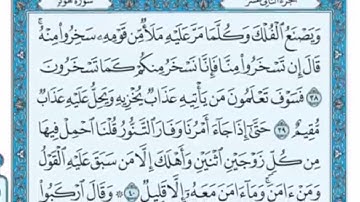 الجزء الثاني عشر سورة هود
وَيَصْنَعُ ٱلْفُلْكَ وَكُلَّمَا مَرَّ عَلَيْهِ مَلَأٌ مِّن قَوْمِهِۦ سَخِرُوا۟ مِنْهُ ۚ
قَالَ إِن تَسْخَرُوا۟ مِنَّا فَإِنَّا نَسْخَرُ مِنكُمْ كَمَا تَسْخَرُونَ
٣٨ فَسَوْفَ تَعْلَمُونَ مَن يَأْتِيهِ عَذَابٌ يُخْزِيهِ وَيَحِلُّ عَلَيْهِ عَذَابٌ
مُّقِيمٌ ٣٩ حَتَّىٰٓ إِذَا جَآءَ أَمْرُنَا وَفَارَ ٱلتَّنُّورُ قُلْنَا ٱحْمِلْ فِيهَا
مِن كُلٍّ زَوْجَيْنِ ٱثْنَيْنِ وَأَهْلَكَ إِلَّا مَن سَبَقَ عَلَيْهِ ٱلْقَوْلُ
وَمَنْ ءَامَنَ ۚ وَمَآ ءَامَنَ مَعَهُۥٓ إِلَّا قَلِيلٌ ٤٠ وَقَالَ ٱرْكَبُوا۟